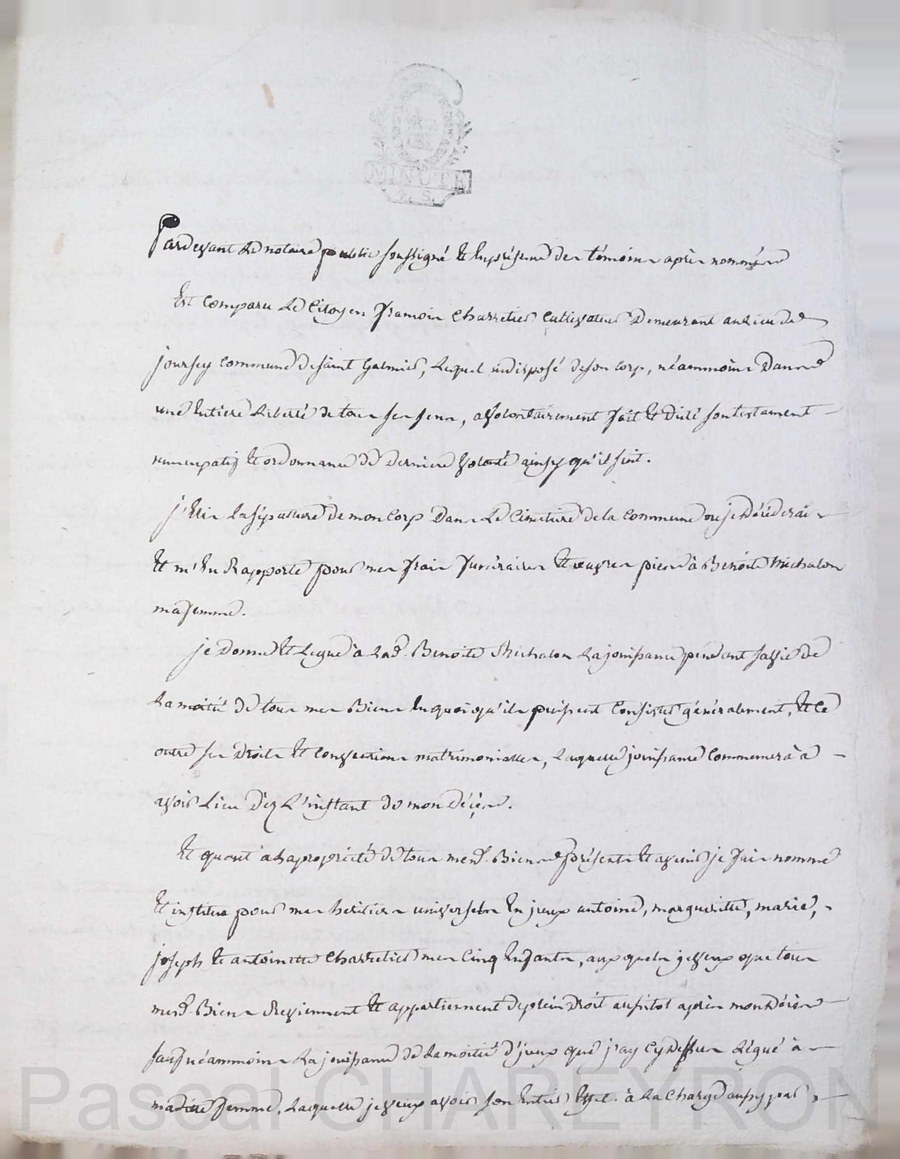 MINUTE
Pardevant Le notaire public soussigné Et En présence des témoins après nommés
Est Comparu Le Citoyen françois Charretier Cultivateur Demeurant au Lieu de
joursey Commune de saint Galmier, Lequel indisposé de son Corp, néammoins Dans
une Entiere Liberté de tous ses sens, a volontairement fait Et Dicté son testament
nuncupatif Et ordonnance de derniere volonté ainsy qu'il suit.
j'Elis la sépulture de mon Corp Dans Le Cimetiere de la Commune ou je Décéderai
Et m'En Rapporte pour mes frais funéraires Et œuvres pies à Benoite Michalon
ma femme.
je donne Et Legue à Lad. Benoite Michalon La jouissance pendant sa vie de
La moitié de tous mes Biens En quoi qu'ils puissent Consister généralement, Et Ce
outre ses Droits Et Convections matrimoniales, Laquelle jouissance Commencera à
avoir Lieu Dez L'instant de mon décès.
Et quant à La propriété de tous mesd. Biens présents Et avenir je fais nomme
Et institue pour mes heritiers universels En jceux antoine, margueritte, marie,
joseph Et antoinette Charretier mes Cinq Enfants, aux quels je veux que tous
mesd. Biens Reviennent Et appartiennent de plein Droit aussitot après mon Décès
sauf néammoins La jouissance de La moitié d'jceux que j'ay Cy dessus Légué à
madite femme, Laquelle je veux avoir son Entier Effet à La Charge aussy par
Pascal CHAREYRON